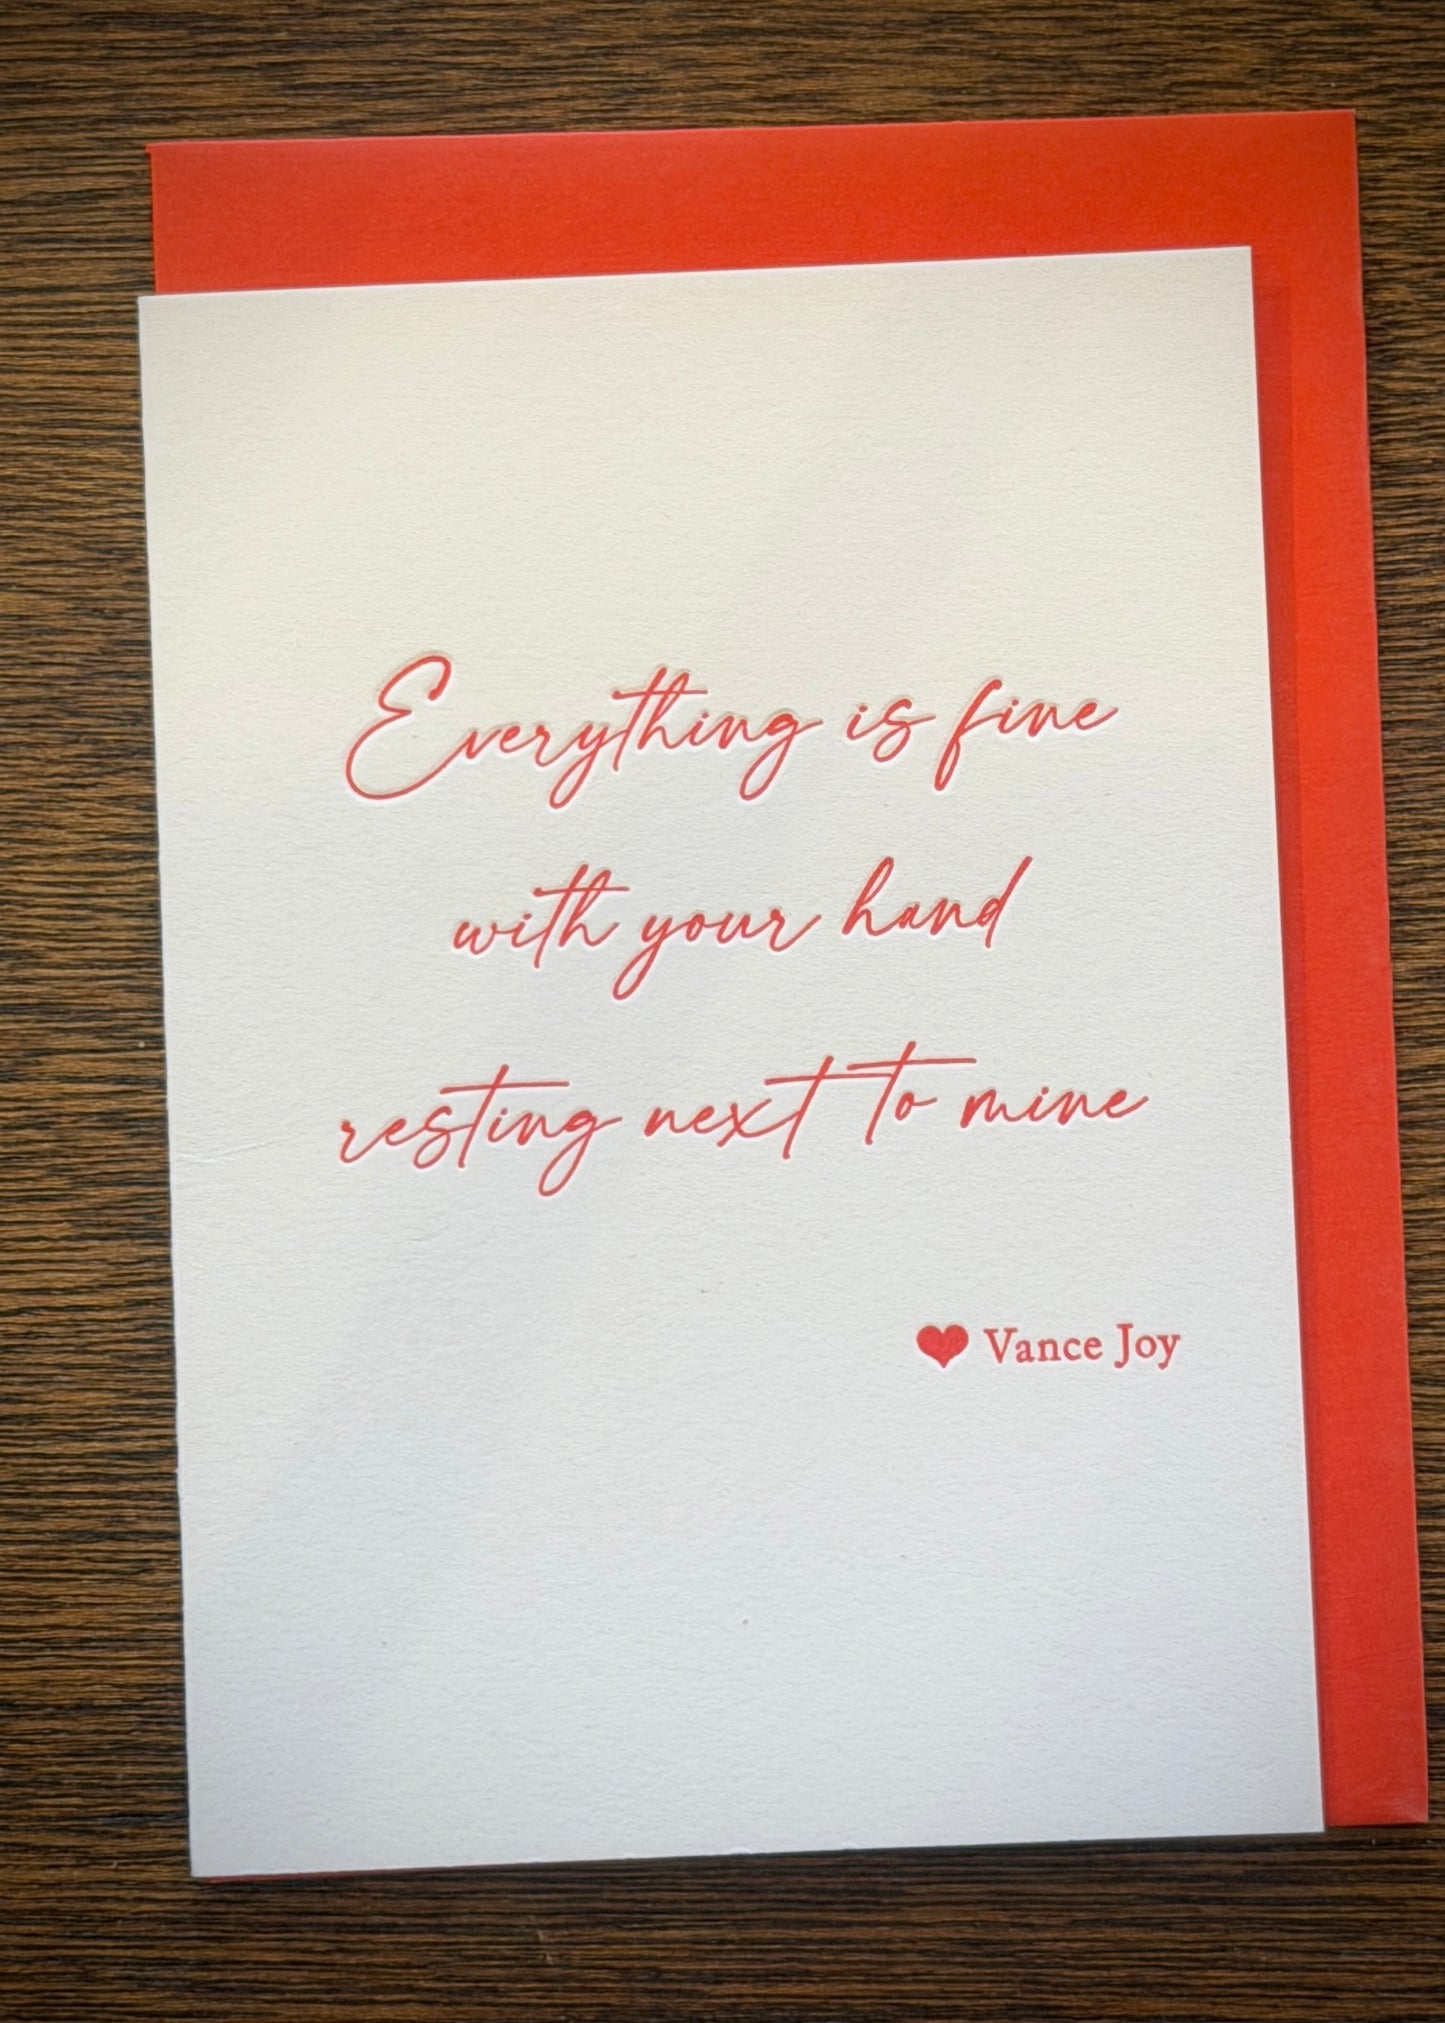 Everything is fine
with your hand
resting next to mine
Vance Joy